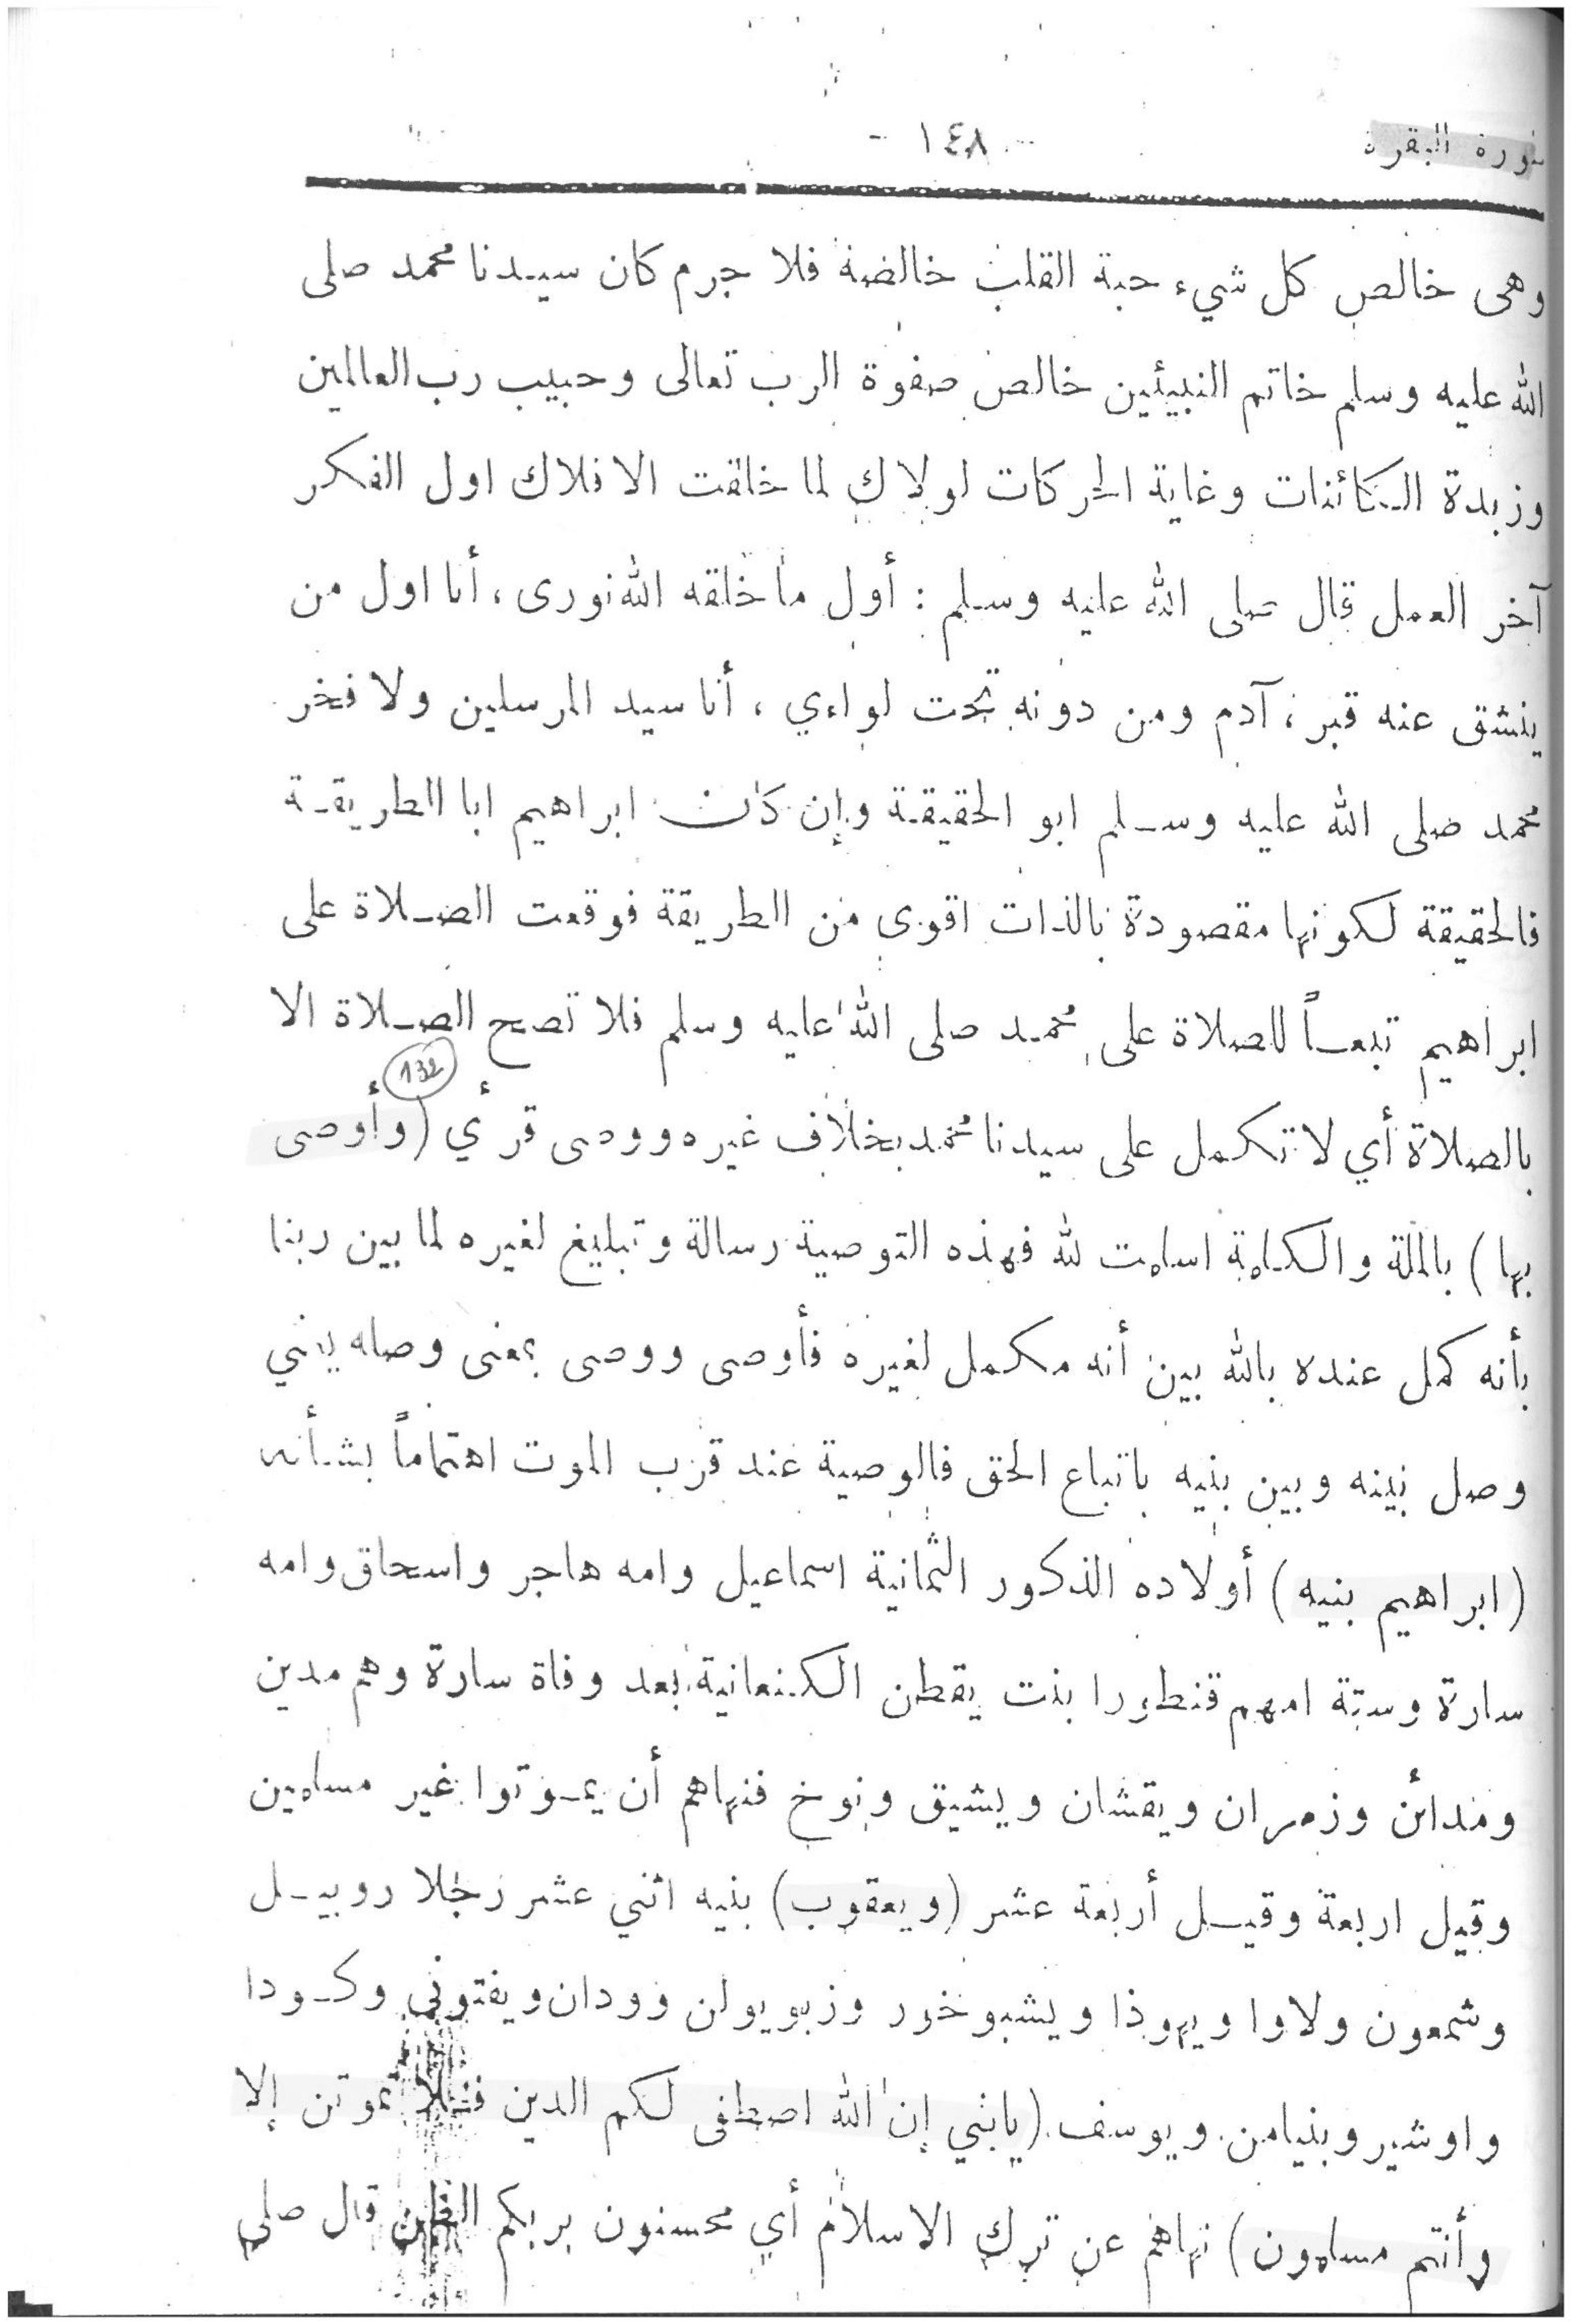 سورة البقرة
- ١٤٨ -
وهى خالص كل شيء حبة القلب خالصة فلا جرم كان سيدنا محمد صلى
الله عليه وسلم خاتم النبيئين خالص صفوة الرب تعالى وحبيب رب العالمين
وزبدة الكائنات وغاية الحركات لولاك لما خلقت الافلاك اول الفكر
آخر العمل قال صلى الله عليه وسلم : أول ما خلقه الله نورى ، أنا اول من
ينشق عنه قبر ، آدم ومن دونه تحت لواءي ، أنا سيد المرسلين ولا فخر
محمد صلى الله عليه وسلم ابو الحقيقة وإن كان ابراهيم ابا الطريقة
فالحقيقة لكونها مقصودة بالذات اقوى من الطريقة فوقعت الصلاة على
ابراهيم تبعاً للصلاة على محمد صلى الله عليه وسلم فلا تصح الصلاة الا
132
بالصلاة أي لا تكمل على سيدنا محمد بخلاف غيره ووصى قرأي (وأوصى
بها) بالملة والكلمة اسلمت لله فهذه التوصية رسالة وتبليغ لغيره لما بين ربنا
بأنه كمل عنده بالله بين أنه مكمل لغيره فأوصى ووصى بمعنى وصله يعني
وصل بينه وبين بنيه باتباع الحق فالوصية عند قرب الموت اهتماماً بشأنه
(ابراهيم بنيه) أولاده الذكور الثمانية اسماعيل وامه هاجر واسحاق وامه
سارة وستة امهم قنطورا بنت يقطن الكنعانية بعد وفاة سارة وهم مدين
ومدائن وزمران ويقشان ويشيق ونوخ فنهاهم أن يموتوا غير مسلمين
وقيل اربعة وقيل أربعة عشر (ويعقوب) بنيه اثني عشر رجلا روبيل
وشمعون ولاوا ويهوذا ويشبوخور وزبويولن وودان ويفتونى وكودا
واوشير وبنيامن ويوسف (يابني إن الله اصطفى لكم الدين فلا تموتن إلا
وأنتم مسلمون) نهاهم عن ترك الاسلام أي محسنون بربكم الظن قال صلى